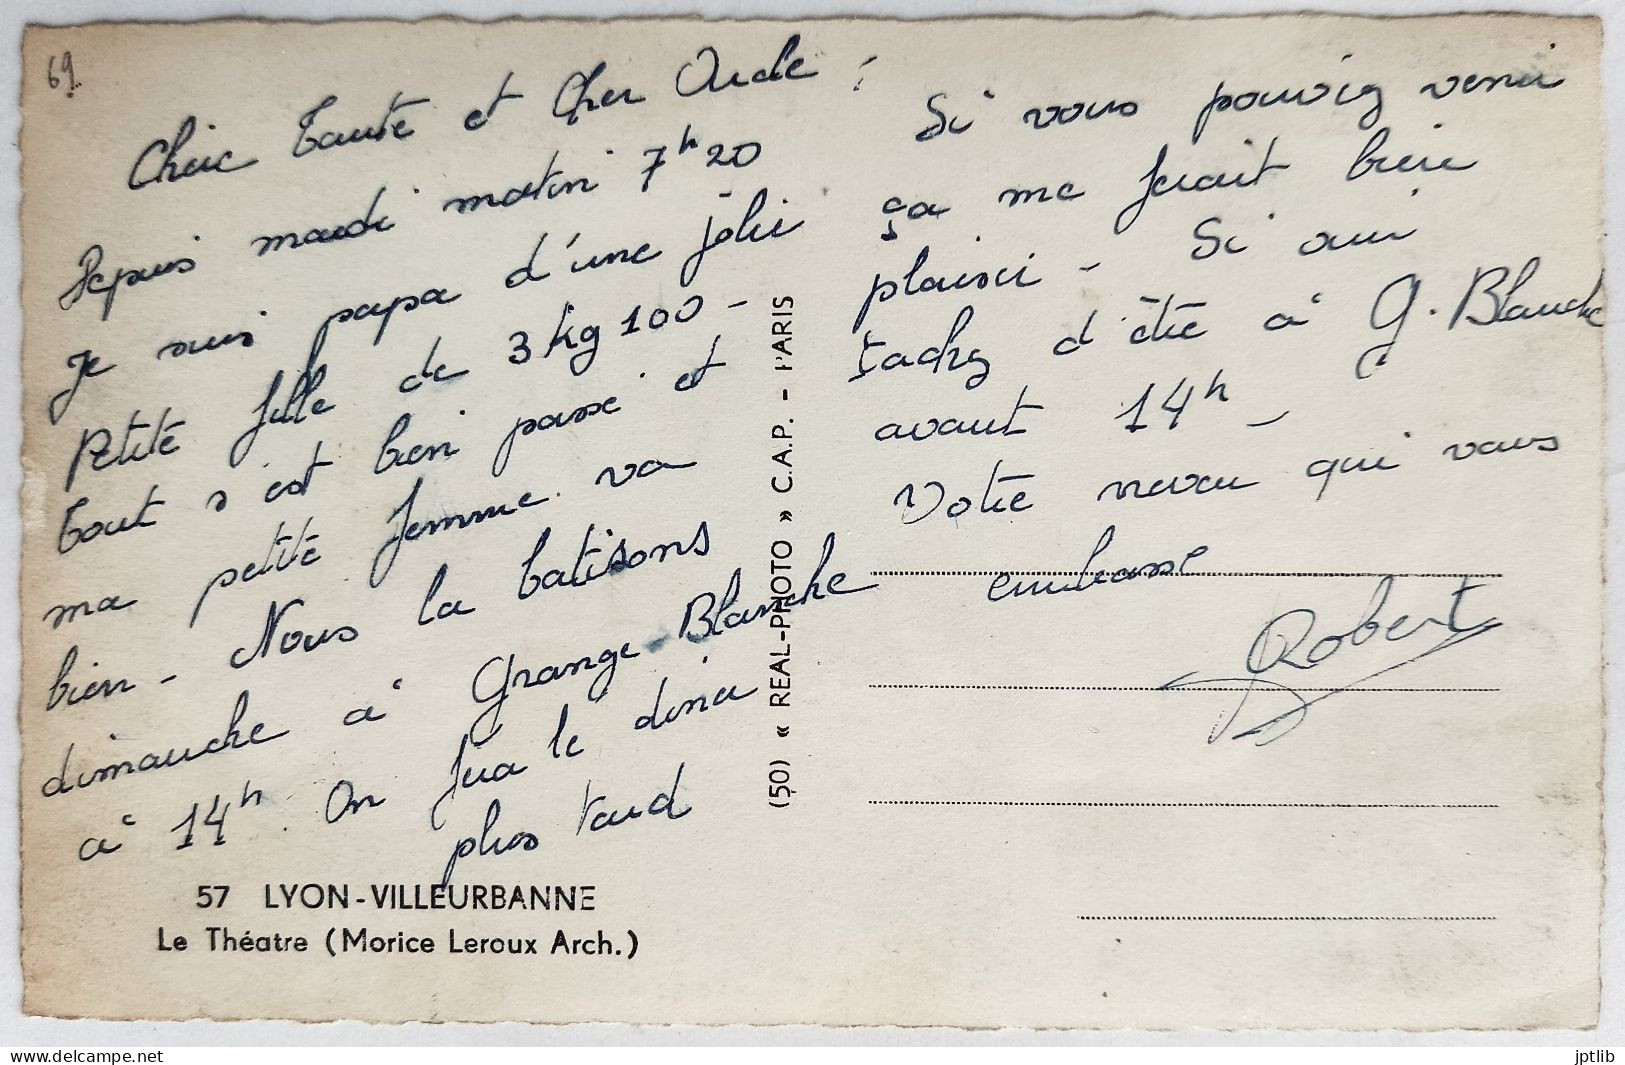 69
Chère Tante et Cher Oncle :
Depuis mardi matin 7h20
Je suis papa d'une jolie
Petite fille de 3kg100-
Tout s'est bien passé et
ma petite femme va
bien - Nous la batisons
dimanche à Grange-Blanche
à 14h. On fera le diner
plus tard
Si vous pouviez venir
ça me ferait bien
plaisir - Si oui
tachez d'être à G. Blanche
avant 14h -
Votre neveu qui vous
embrasse
Robert
(50) « REAL-PHOTO » C.A.P. - PARIS
57 LYON-VILLEURBANNE
Le Théatre (Morice Leroux Arch.)
jptlib